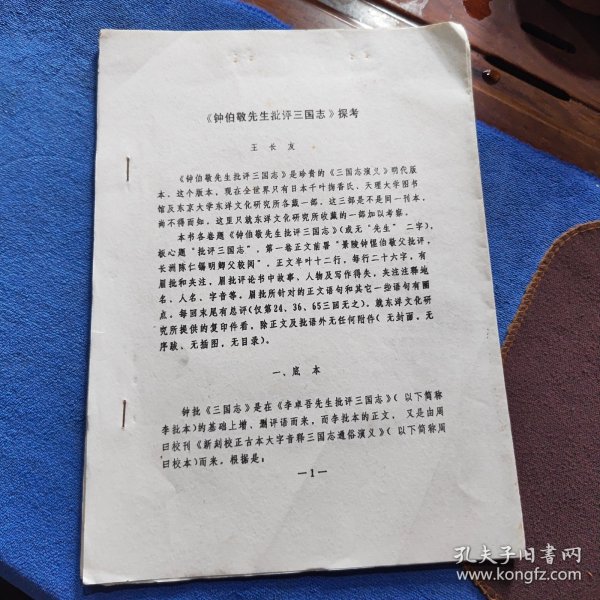 《钟伯敬先生批评三国志》探考
王长友
《钟伯敬先生批评三国志》是珍贵的《三国志演义》明代版
本。这个版本，现在全世界只有日本千叶掬香氏、天理大学图书
馆及东京大学东洋文化研究所各藏一部，这三部是不是同一刊本，
尚不得而知，这里只就东洋文化研究所收藏的一部加以考察。
本书各卷题《钟伯敬先生批评三国志》(或无“先生”二字)，
板心题“批评三国志”，第一卷正文前署“景陵钟惺伯敬父批评，
长洲陈仁锡明卿父较阅”，正文半叶十二行，每行二十六字，有
眉批和夹注，眉批评论书中故事、人物及写作得失，夹注注释地
名、人名、字音等，眉批所针对的正文语句和其它一些语句有圈
点，每回末尾有总评(仅第24、36、65三回无之)。就东洋文化研
究所提供的复印件看，除正文及批语外无任何附件(无封面，无
序跋、无插图，无目录)。
一、底本
钟批《三国志》是在《李卓吾先生批评三国志》(以下简称
李批本)的基础上增、删评语而来，而李批本的正文，又是由周
曰校刊《新刻校正古本大字音释三国志通俗演义》(以下简称周
曰校本)而来，根据是：
—1—
孔夫子旧书网
www.kongfz.com